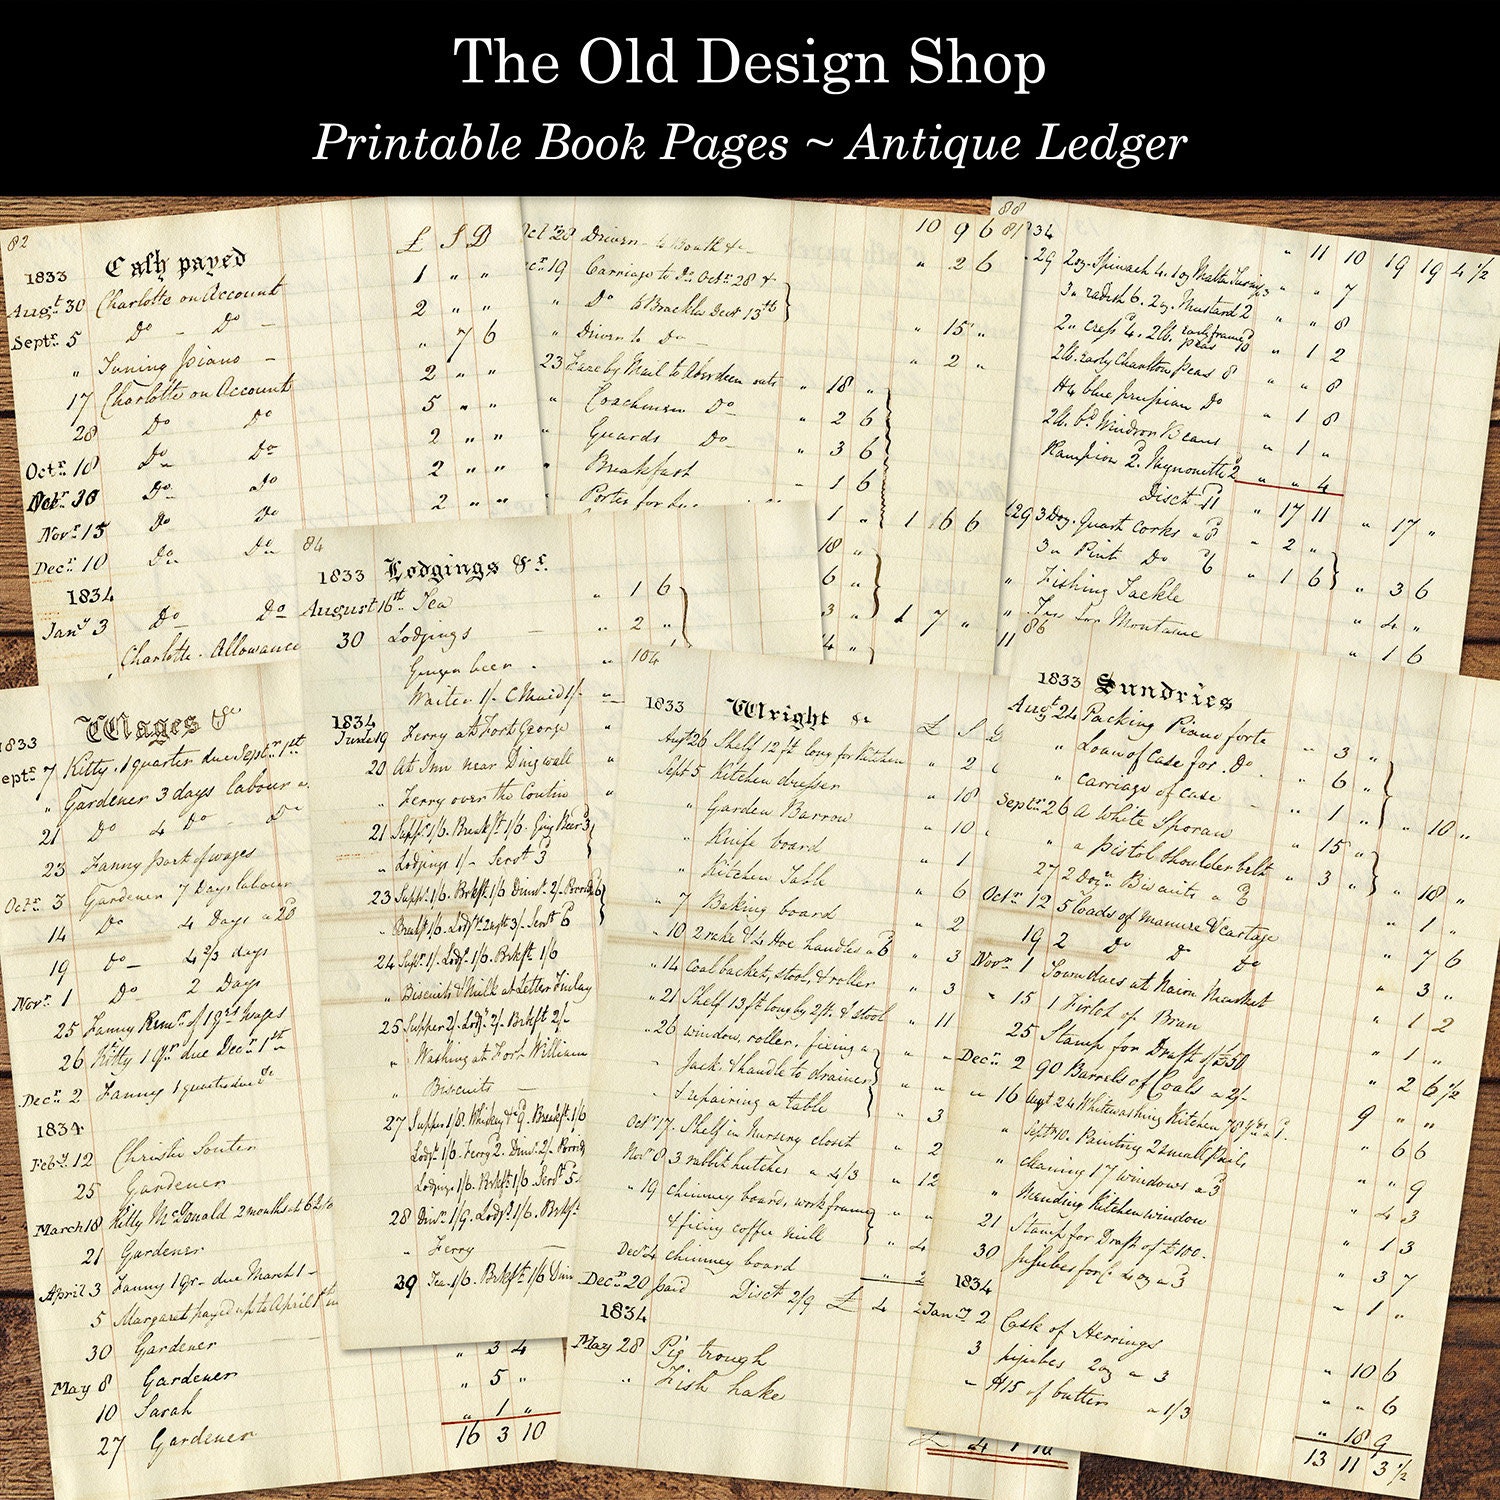 The Old Design Shop
Printable Book Pages ~ Antique Ledger
82
£ S D
1833 Cash payed
Augt 30 Charlotte on Account 1 " "
Septr 5 Do - Do - 2 " "
" Tuning Piano - " 7 6
17 Charlotte on Account 2 " "
28 Do Do 5 " "
Octr 10 Do Do 2 " "
30 Do Do 2 " "
Novr 15 Do Do 2 " "
Decr 10 Do Do
1834
Jany 3 Do Do
Charlotte. Allowance
10 9 6
19 Carriage to Do Octr 28 &
" Do to Brackla Decr 13th
" Drivers to Do - " 15 "
23 Fare by Mail to Aberdeen " 18 "
" Coachmen Do " 2 6
" Guards Do " 3 6
" Breakfast - 1 6
Porter for 1 " 1 6 6
18 "
6 "
3 " 1 7 "
4 "
88
" 11 10 19 19 4 1/2
29 2oz. Spinach 4. " " 7
3 " radish 6. 2oz. Mustard 2 " " 8
2 " cress 4. 2lb. early frame peas 10 " 1 2
2lb. early Charlton peas 8 " " 8
blue prussian Do " 1 8
2lb. Bd Windsor Beans " 1 "
Rampion 2. Mignonette 2 " " 4
Disct 11 " 17 11 " 17 "
29 3 Doz. Quart corks " 2 "
3 " Pint Do 6 " 1 6 " 3 6
" Fishing Tackle " 4 "
" 1 6
84
1833 Lodgings &c.
August 16st Tea " 1 6
30 Lodgings - " 2 "
Ginger beer "
Waiter 1/- C. Maid 1/-
1834
June 19 Ferry at Fort George
20 At Inn near Dingwall
" Ferry over the
21 Suppr 1/6. Breakft 1/6. Ging Beer 3
" Lodgings 1/- Servt 3
23 Suppr 1/6. Brkft 1/6 Dinnr 2/-
24 Suppr 1/- Lodgs 1/6. Brkft 1/6
" Biscuits & Milk at Letter Finlay
25 Supper 2/- Lodgs 2/- Brkft 2/-
" Washing at Fort William
" Biscuits -
27 Supper 1/8. Whiskey &c 9. Breakft 1/6
Lodgs 1/6. Ferry 2. Dinnr 2/-
Lodgings 1/6. Brkft 1/6 Servt 5.
28 Dinr 1/9. Lodgs 1/6. Brkft
" Ferry -
29 Tea 1/6. Brkft 1/6 Dinn
Wages &c
1833
Septr 7 Kitty. 1 quarter due Septr 1st
" Gardener 3 days labour
21 Do 4 Do - Do
23 Fanny part of wages
Octr 3 Gardener 7 Days labour
14 Do 4 Days
19 Do - 4 2/3 days
Novr 1 Do - 2 Days
25 Fanny Remr of 1 qrs wages
26 Kitty 1 qr due Decr 1st
Decr 2 Fanny 1 quarter due Do
1834.
Feby 12 Christie Souter
25 Gardener
March 18 Kitty McDonald 2 months
21 Gardener
April 3 Fanny 1 Qr - due March 1 -
5 Margaret payed up to April 1st
30 Gardener " 3 4
May 8 Gardener " 5 "
10 Sarah " 1 "
27 Gardener 16 3 10
104
1833 Wright &c £ S D
Augt 26 Shelf 12 ft long for Kitchen " 2
Sept 5 Kitchen dresser " 18
" Garden Barrow " 10
" Knife board " 1
" Kitchen Table " 6
" 7 Baking board " 2
" 10 2 rake & 4 Hoe handles a 6 " 3
" 14 Coal backet, stool, & roller " 3
" 21 Shelf 13 ft long by 2 ft. & stool " 11
" 26 window, roller, fixing a
Jack. & handle to drainer
& repairing a table " 3
Octr 17. Shelf in Nursery closet " 2
Novr 8 3 rabbit hutches a 4/3 " 12
" 19 chimney board, work frame
& fixing coffee mill " 4
Decr 4 chimney board
Decr 20 paid Disct 2/9 £ 4
1834
May 28 Pig trough
" Fish hake
86
1833 Sundries
Augt 24 Packing Piano forte " 3 "
" Loan of Case for Do. " 6 "
" Carriage of case " 1 " " 10 "
Septr 26 A White Sporan " 15 "
" a pistol shoulder belt " 3 " " 18 "
27 2 Dozn Biscuits a 6 " 1 "
Octr 12 5 loads of manure & Cartage " 7 6
19 2 Do Do Do " 3 "
Novr 1 Towndues at Nairn Market " 1 2
15 1 Firlot of Bran " 1 "
25 Stamp for Draft of £50 " 2 6 1/2
Decr 2 90 Barrels of Coals a 2/- 9 " "
" 16 Augt 24 Whitewashing Kitchen " 6 6
" Septr 10. Painting 2 small Pails " " 9
" cleaning 17 windows a 3 " 4 3
" Mending Kitchen window " 1 3
21 Stamp for Draft of £100. " 3 7
30 Jujubes for C. 4 oz a 3 " 1 "
1834
Jany 2 Cask of Herrings " 10 6
3 jujubes 2oz a 3 " " 6
" of butter a 1/3 " 18 9
13 11 3 1/2